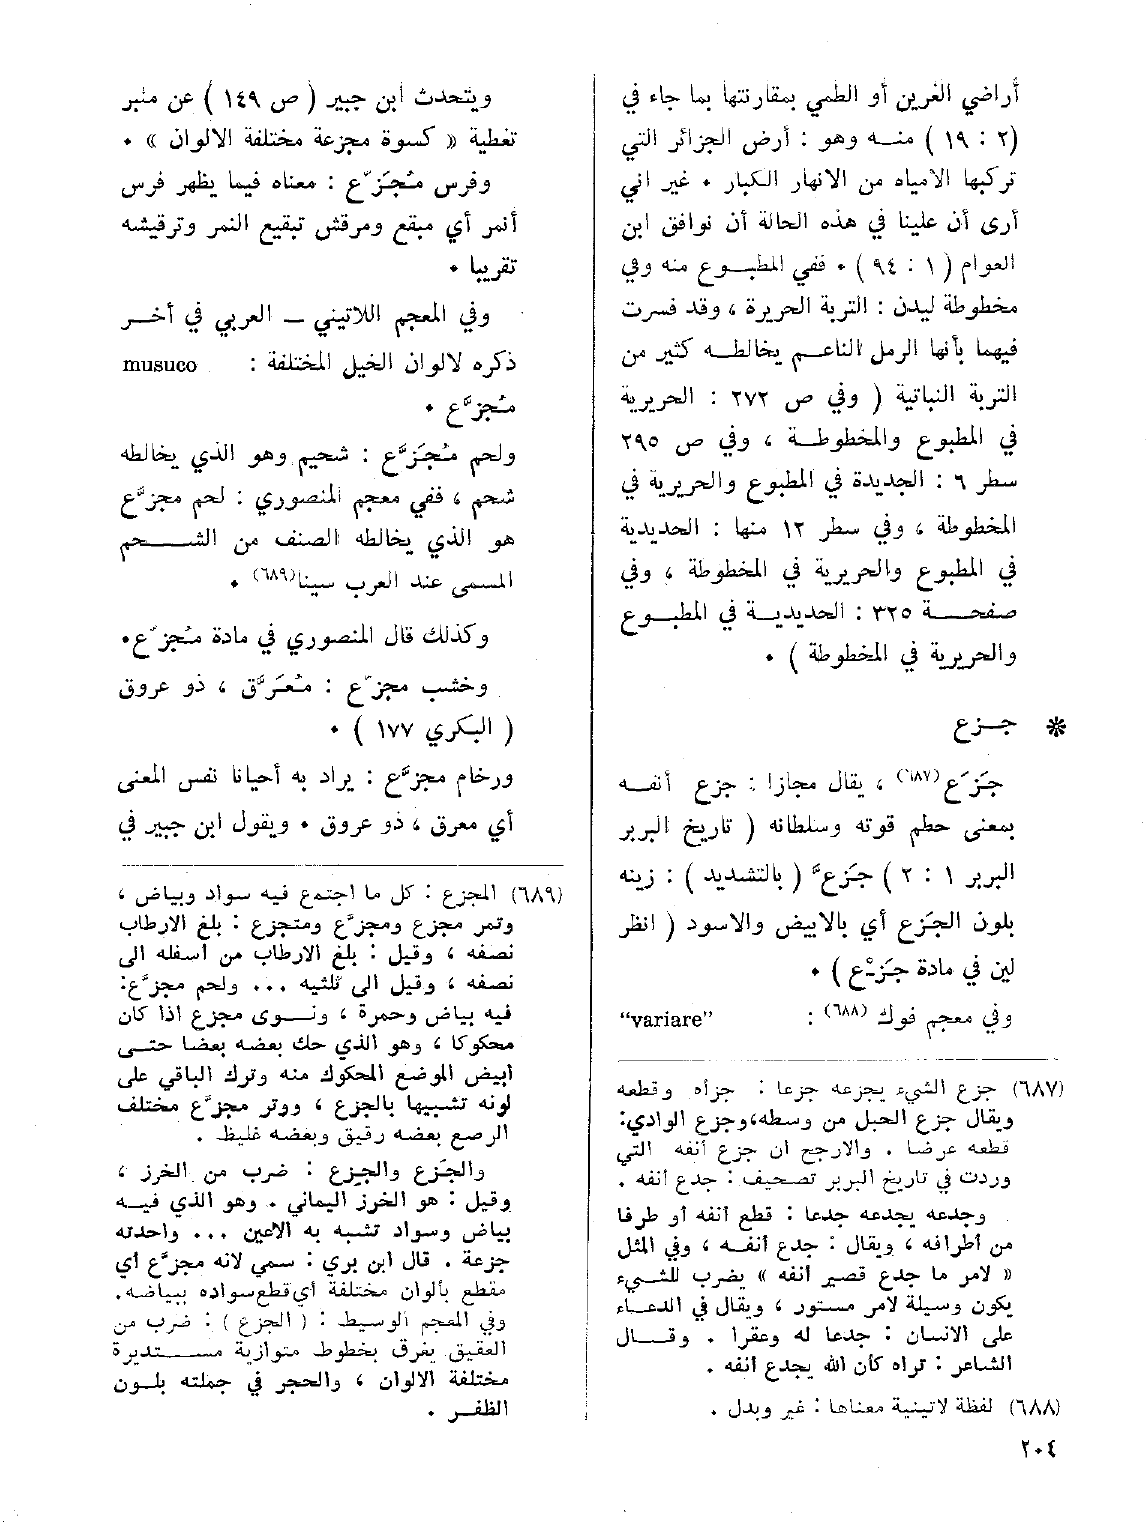 أراضي الغرين أو الطمي بمقارنتها بما جاء في
(٢ : ١٩) منـه وهو : أرض الجزائر التي
تركبها الامياه من الانهار الكبار • غير اني
أرى أن علينا في هذه الحالة أن نوافق ابن
العوام (١ : ٩٤) • ففي المطبـوع منه وفي
مخطوطة ليدن : التربة الحريرة ، وقد فسرت
فيهما بأنها الرمل الناعـم يخالطـه كثير من
التربة النباتية ( وفي ص ٢٧٢ : الحريرية
في المطبوع والمخطوطـة ، وفي ص ٢٩٥
سطر ٦ : الجديدة في المطبوع والحريرية في
المخطوطة ، وفي سطر ١٢ منها : الحديدية
في المطبوع والحريرية في المخطوطة ، وفي
صفحـة ٣٢٥ : الحديديـة في المطبـوع
والحريرية في المخطوطة ) •
* جـزع
جَزَع(٦٨٧) ، يقال مجازا : جزع أنفـه
بمعنى حطم قوته وسلطانه ( تاريخ البربر
البربر ١ : ٢ ) جَزَّع ( بالتشديد ) : زينه
بلون الجَزع أي بالابيض والاسود ( انظر
لين في مادة جَزْع ) •
وفي معجم فوك (٦٨٨) : “variare”
(٦٨٧) جزع الشيء يجزعه جزعا : جزأه وقطعه
ويقال جزع الحبل من وسطه، وجزع الوادي:
قطعه عرضا . والارجح ان جزع أنفه التي
وردت في تاريخ البربر تصحيف : جدع أنفه .
وجدعه يجدعه جدعا : قطع أنفه أو طرفا
من أطرافه ، ويقال : جدع أنفـه ، وفي المثل
« لامر ما جدع قصير أنفه » يضرب للشـيء
يكون وسيلة لامر مستور ، ويقال في الدعـاء
على الانسان : جدعا له وعقرا . وقـال
الشاعر : تراه كأن الله يجدع أنفه .
(٦٨٨) لفظة لاتينية معناها : غير وبدل .
ويتحدث ابن جبير ( ص ١٤٩ ) عن منبر
تغطية « كسوة مجزعة مختلفة الالوان » •
وفرس مُجَزَّع : معناه فيما يظهر فرس
أنمر أي مبقع ومرقش تبقيع النمر وترقيشه
تقريبا •
وفي المعجم اللاتيني – العربي في آخـر
ذكره لالوان الخيل المختلفة : musuco
مُجزَّع •
ولحم مُجَزَّع : شحيم وهو الذي يخالطه
شحم ، ففي معجم المنصوري : لحم مجزَّع
هو الذي يخالطه الصنف من الشـحم
المسمى عند العرب سينا(٦٨٩) •
وكذلك قال المنصوري في مادة مُجزَّع•
وخشب مجزَّع : مُعَرَّق ، ذو عروق
( البكري ١٧٧ ) •
ورخام مجزَّع : يراد به أحيانا نفس المعنى
أي معرق ، ذو عروق • ويقول ابن جبير في
(٦٨٩) المجزع : كل ما اجتمع فيه سواد وبياض ،
وتمر مجزع ومجزَّع ومتجزع : بلغ الارطاب
نصفه ، وقيل : بلغ الارطاب من أسفله الى
نصفه ، وقيل الى ثلثيه ... ولحم مجزَّع:
فيه بياض وحمرة ، ونـوى مجزع اذا كان
محكوكا ، وهو الذي حك بعضه بعضا حتـى
أبيض الموضع المحكوك منه وترك الباقي على
لونه تشبيها بالجزع ، ووتر مجزَّع مختلف
الرصع بعضه رقيق وبعضه غليظ .
والجَزع والجِزع : ضرب من الخرز ،
وقيل : هو الخرز اليماني . وهو الذي فيـه
بياض وسواد تشبه به الاعين ... واحدته
جزعة . قال ابن بري : سمي لانه مجزَّع أي
مقطع بألوان مختلفة أي قطع سواده ببياضه.
وفي المعجم الوسيط : ( الجزع ) : ضرب من
العقيق يعرق بخطوط متوازية مستديرة
مختلفة الالوان ، والحجر في جملته بلـون
الظفـر .
٢٠٤